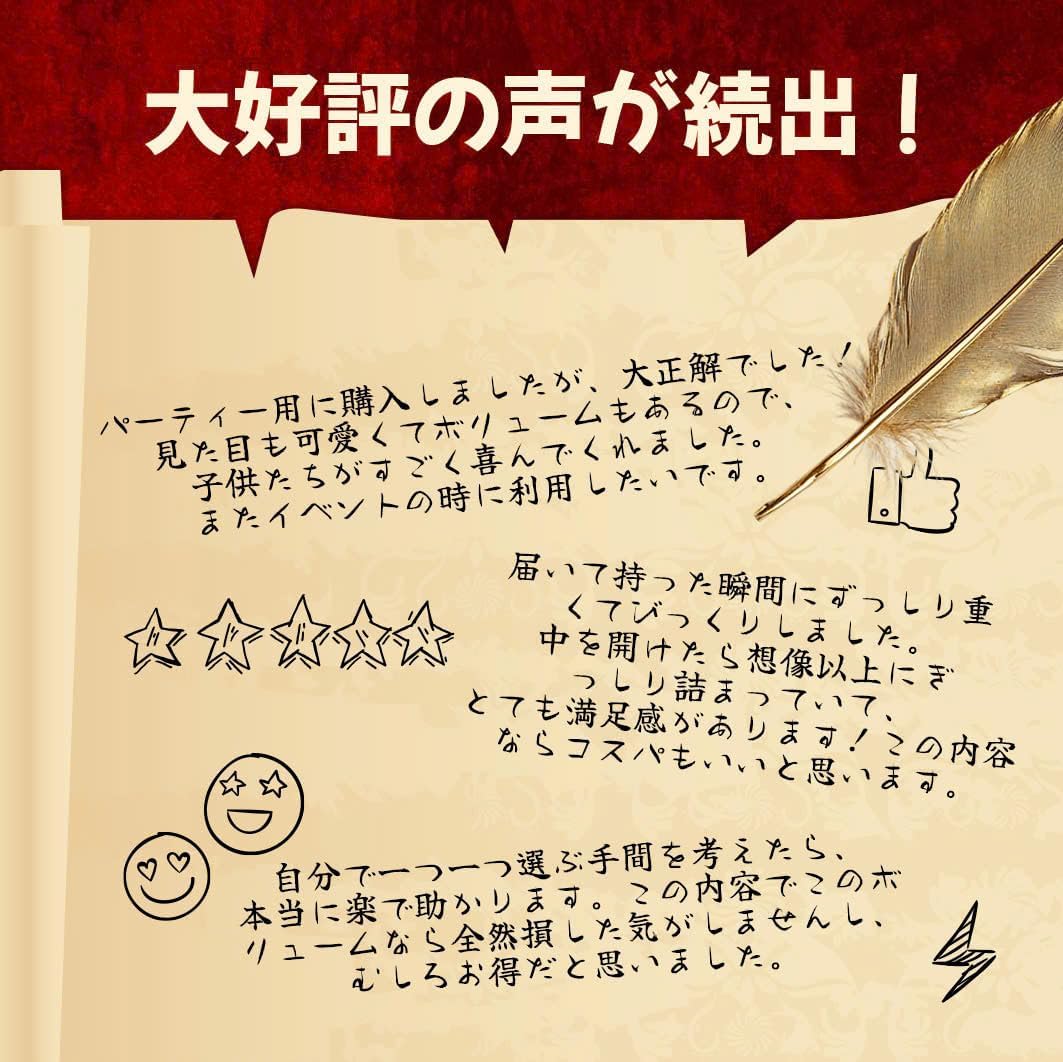 大好評の声が続出！
パーティー用に購入しましたが、大正解でした！
見た目も可愛くてボリュームもあるので、
子供たちがすごく喜んでくれました。
またイベントの時に利用したいです。
届いて持った瞬間にずっしり重
くてびっくりしました。
中を開けたら想像以上にぎ
っしり詰まっていて、
とても満足感があります！この内容
ならコスパもいいと思います。
自分で一つ一つ選ぶ手間を考えたら、
本当に楽で助かります。この内容でこのボ
リュームなら全然損した気がしませんし、
むしろお得だと思いました。